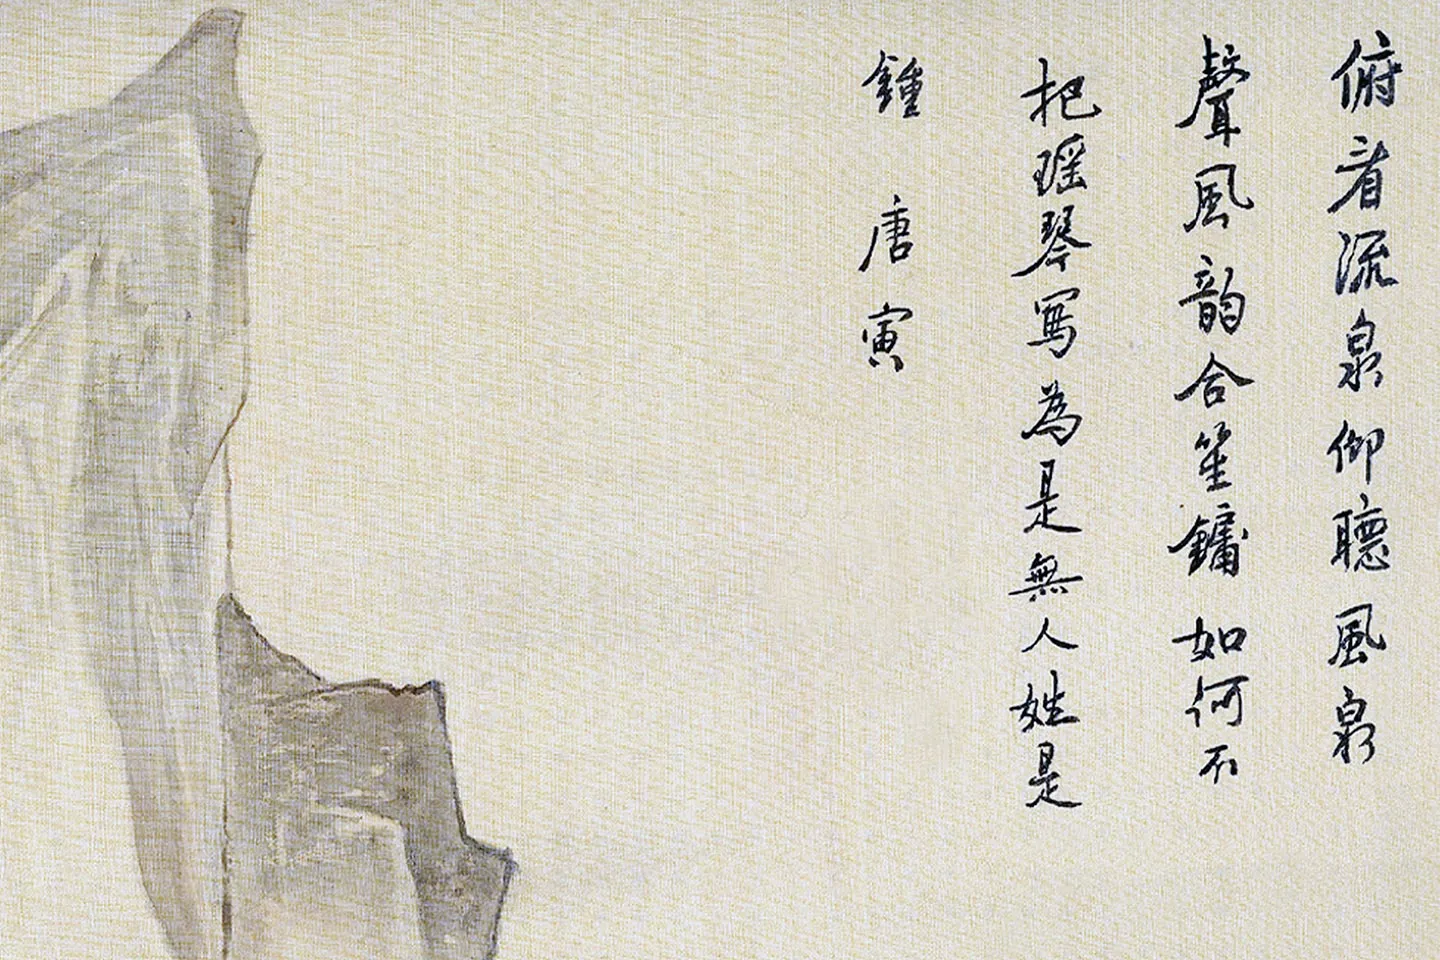 俯看流泉仰聽風泉
聲風韵合笙鏞如何不
把瑶琴寫為是無人姓是
鍾 唐寅